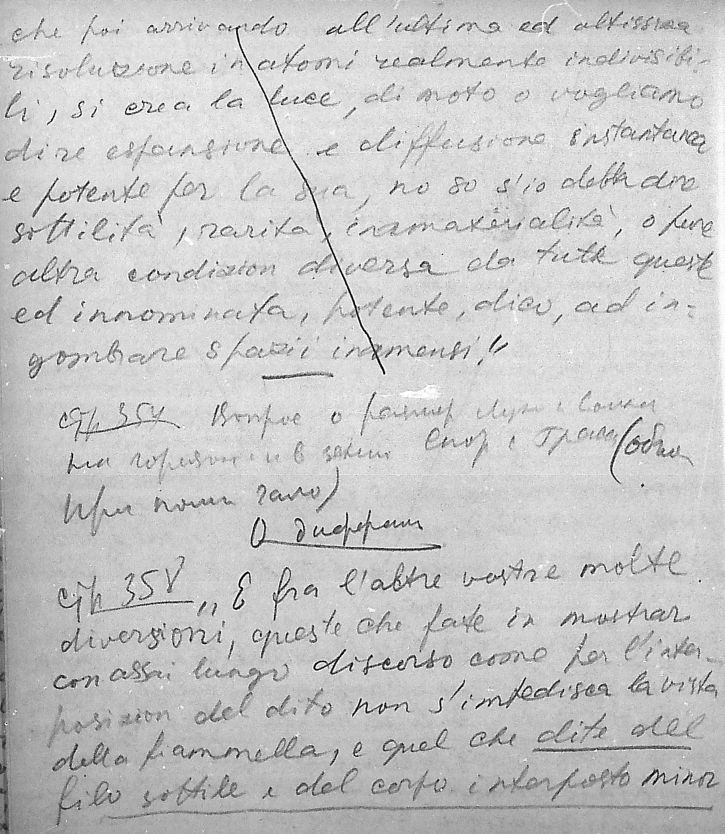 che poi arrivando all'ultima ed altissima
risoluzione in atomi realmente indivisibi-
li, si crea la luce, di moto o vogliamo
dire espansione e diffusione instantanea
e potente per la sua, no so s'io debba dire
sottilità, rarità, inmaterialità, o pure
altra condizion diversa da tutte queste
ed innominata, potente, dico, ad in=
gombrare spazii inmensi!"
стр 354 Вопрос о размер Луны и Солнца
на горизонте и в зените
О дифракции
стр 358 „E fra l'altre vostre molte
diversioni, queste che fate in mostrar
con assai lungo discorso come per l'inter-
posizion del dito non s'impedisca la vista
della fiammella, e quel che dite del
filo sottile e del corpo interposto minor